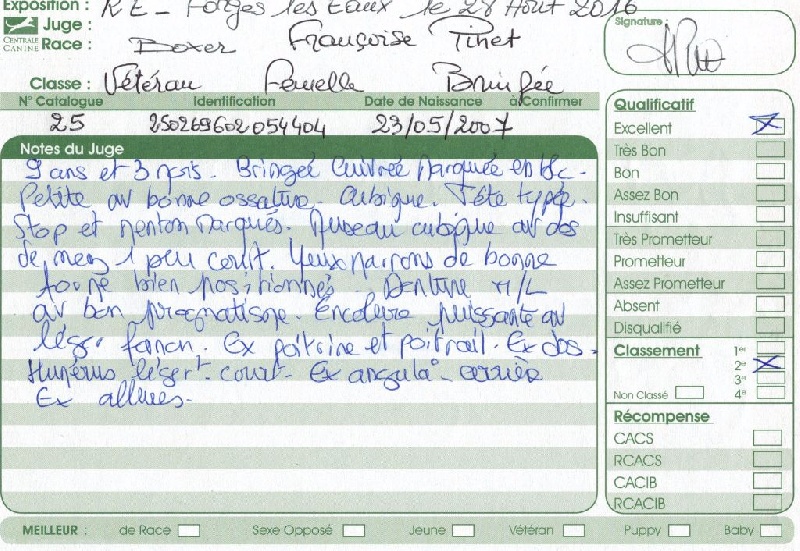 Exposition : RE - Forges les Eaux le 28 Août 2016
CENTRALE CANINE
Juge : Françoise Pinet
Race : Boxer
Signature :
Classe : Vétéran Femelle Bringée
N° Catalogue Identification Date de Naissance à Confirmer
25 250269602054404 23/05/2007
Notes du Juge
9 ans et 3 mois. Bringée Cuivrée Marquée en blc.
Petite av bonne ossature. Cubique. Tête typée.
Stop et menton marqués. Museau cubique av dos
de nez 1 peu court. Yeux marrons de bonne
forme bien positionnés. Denture M/L
av bon prognatisme. Encolure puissante av
léger fanon. Ex poitrine et poitrail. Ex dos.
Humérus légert court. Ex angula° arrière
Ex allures.
Qualificatif
Excellent
Très Bon
Bon
Assez Bon
Insuffisant
Très Prometteur
Prometteur
Assez Prometteur
Absent
Disqualifié
Classement 1er
2e
3e
Non Classé 4e
Récompense
CACS
RCACS
CACIB
RCACIB
MEILLEUR : de Race Sexe Opposé Jeune Vétéran Puppy Baby